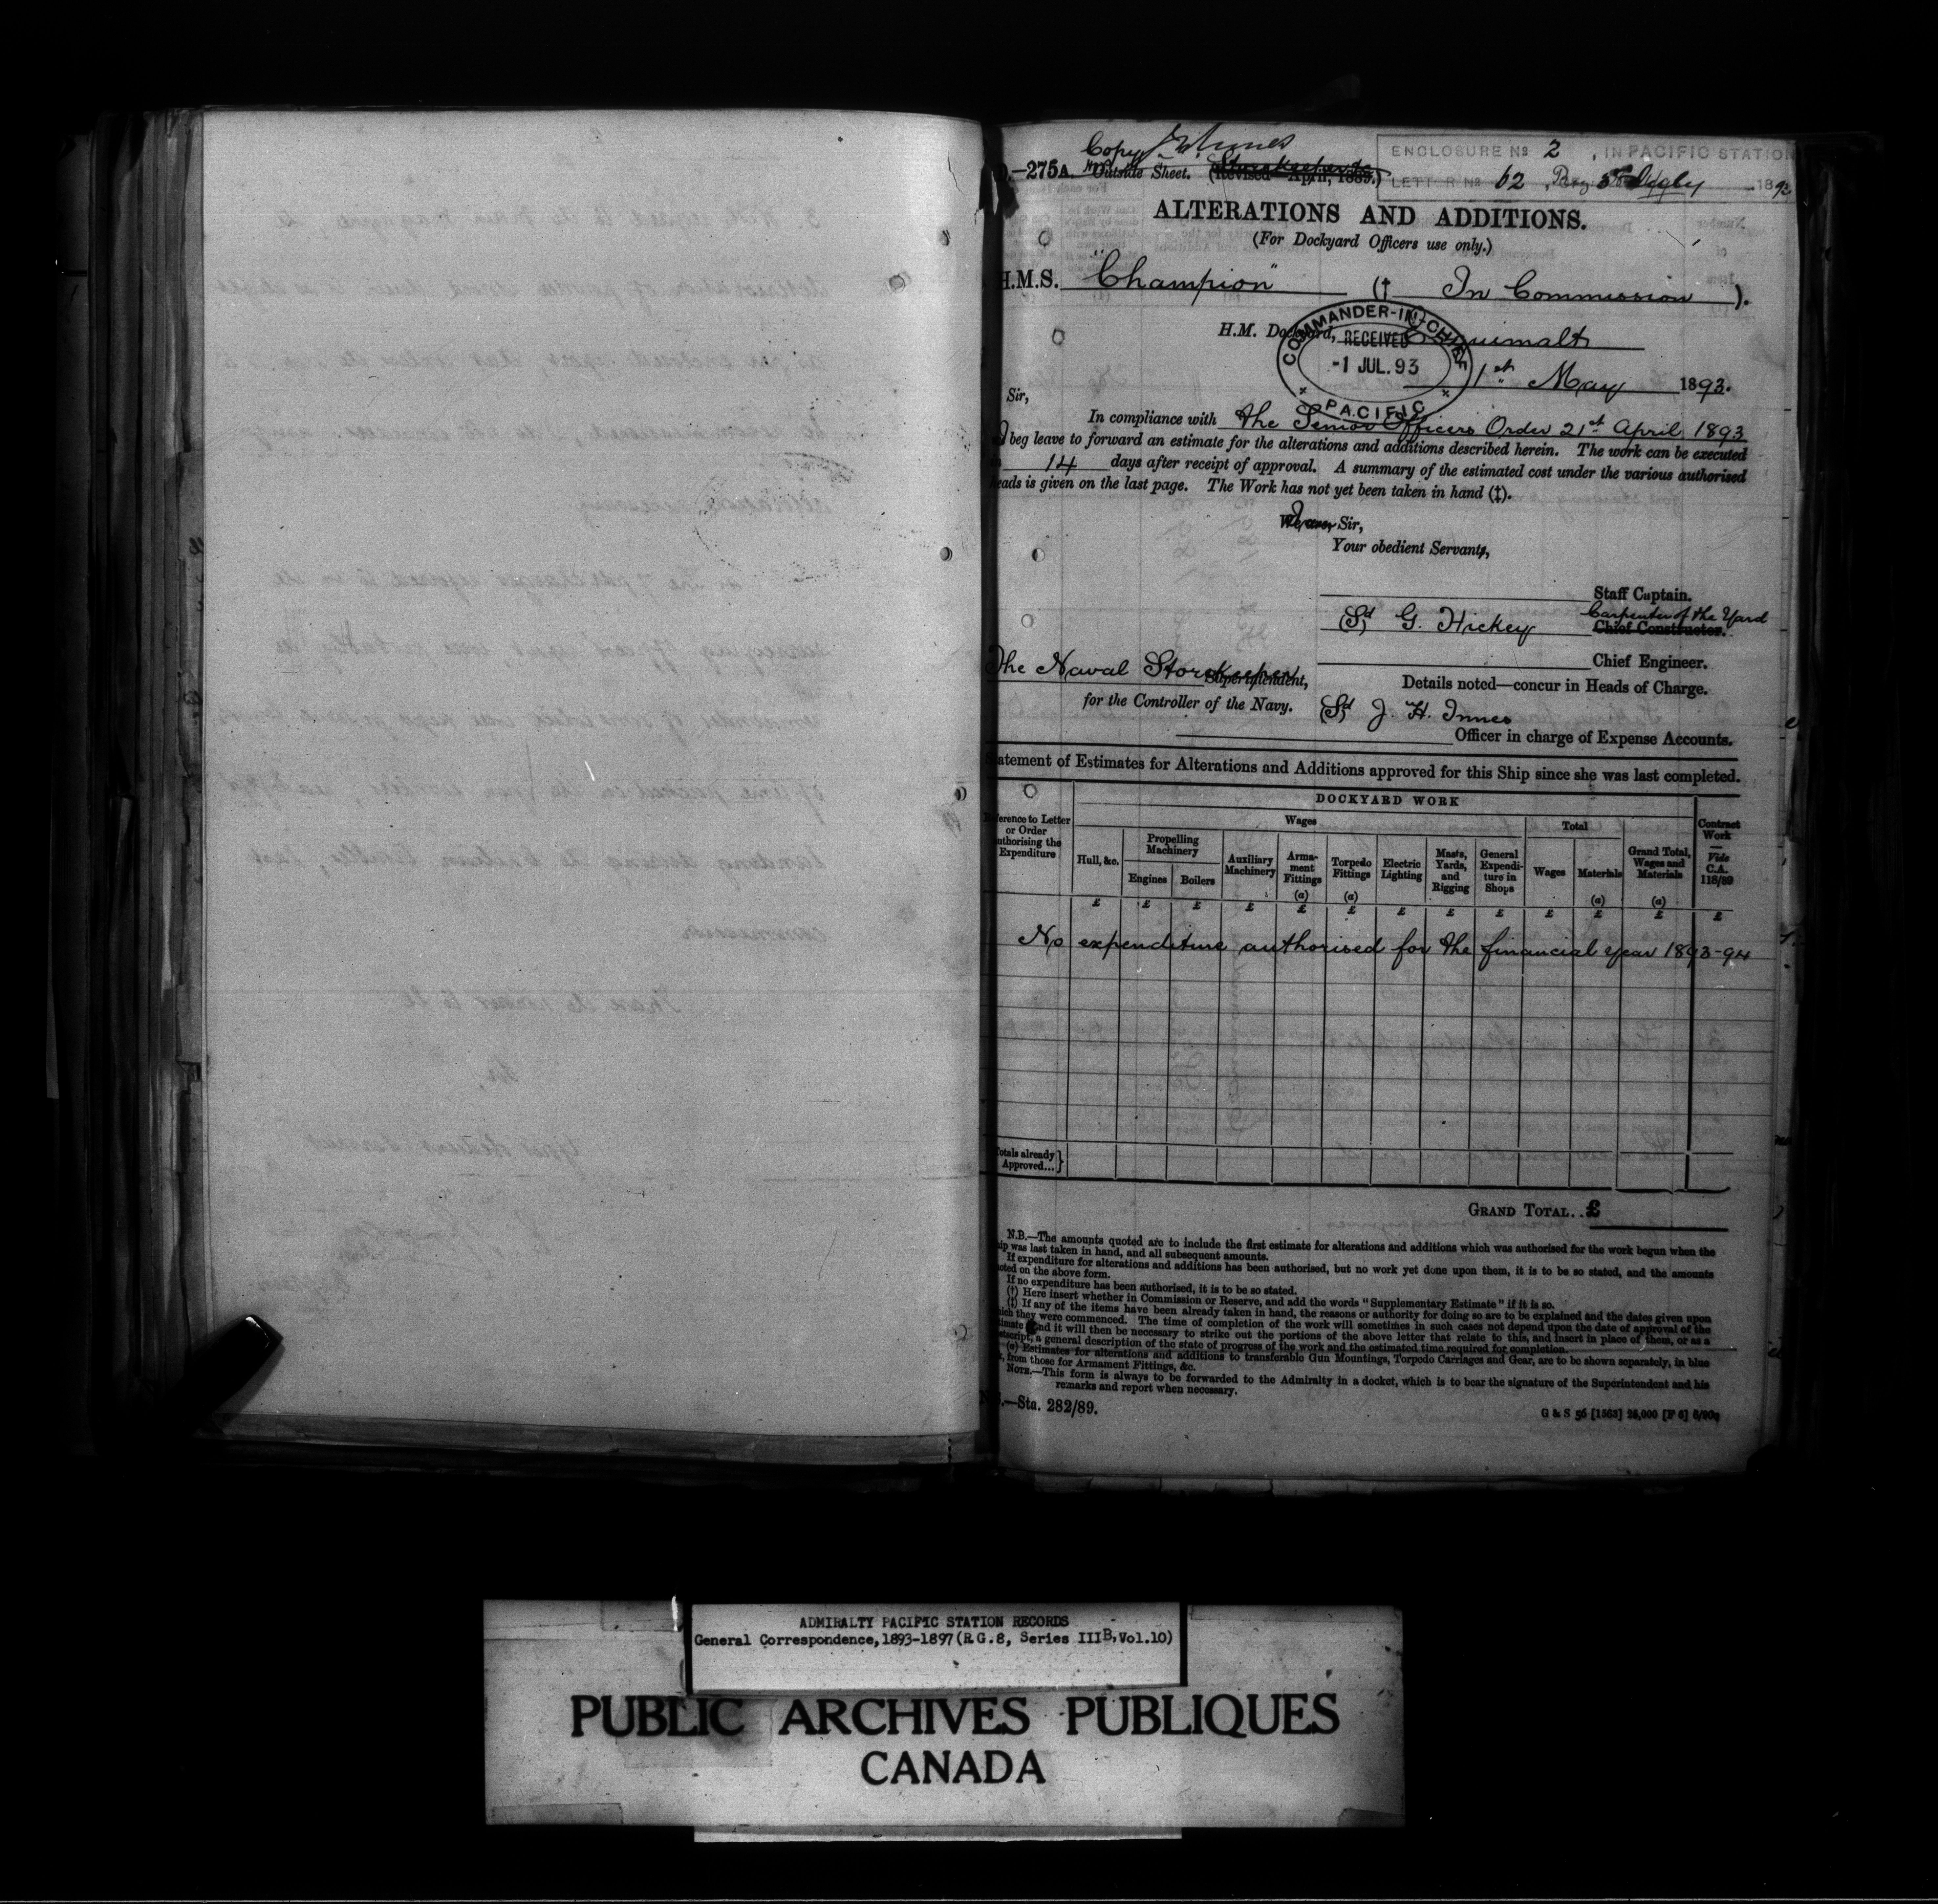 Copy
ENCLOSURE No 2, IN PACIFIC STATION
D.—275A. Outside Sheet. (Revised April, 1889.)
LETTER No 62 1893
ALTERATIONS AND ADDITIONS.
(For Dockyard Officers use only.)
H.M.S. "Champion" († In Commission ).
H.M. Dockyard, Esquimalt
COMMANDER-IN-CHIEF
RECEIVED
-1 JUL.93
PACIFIC
1st May 1893.
Sir,
In compliance with the Senior Officers Order 21st April 1893
beg leave to forward an estimate for the alterations and additions described herein. The work can be executed
14 days after receipt of approval. A summary of the estimated cost under the various authorised
heads is given on the last page. The Work has not yet been taken in hand (‡).
Sir,
Your obedient Servant,
Staff Captain.
Carpenter of the Yard
(Sd) G. Hickey Chief Constructor.
Chief Engineer.
The Naval Storekeeper
Superintendent,
Details noted—concur in Heads of Charge.
for the Controller of the Navy.
(Sd) J. H. Innes
Officer in charge of Expense Accounts.
Statement of Estimates for Alterations and Additions approved for this Ship since she was last completed.
DOCKYARD WORK
Reference to Letter or Order authorising the Expenditure
Wages
Total
Contract Work — Vide C.A. 118/89
Hull, &c.
Propelling Machinery
Engines
Boilers
Auxiliary Machinery
Armament Fittings (a)
Torpedo Fittings (a)
Electric Lighting
Masts, Yards, and Rigging
General Expenditure in Shops
Wages
Materials (a)
Grand Total, Wages and Materials (a)
£ £ £ £ £ £ £ £ £ £ £ £ £
No expenditure authorised for the financial year 1893-94
Totals already Approved...}
GRAND TOTAL..£
N.B.—The amounts quoted are to include the first estimate for alterations and additions which was authorised for the work begun when the
ship was last taken in hand, and all subsequent amounts.
If expenditure for alterations and additions has been authorised, but no work yet done upon them, it is to be so stated, and the amounts
noted on the above form.
If no expenditure has been authorised, it is to be so stated.
(†) Here insert whether in Commission or Reserve, and add the words "Supplementary Estimate" if it is so.
(‡) If any of the items have been already taken in hand, the reasons or authority for doing so are to be explained and the dates given upon
which they were commenced. The time of completion of the work will sometimes in such cases not depend upon the date of approval of the
estimate and it will then be necessary to strike out the portions of the above letter that relate to this, and insert in place of them, or as a
postscript, a general description of the state of progress of the work and the estimated time required for completion.
(a) Estimates for alterations and additions to transferable Gun Mountings, Torpedo Carriages and Gear, are to be shown separately, in blue
from those for Armament Fittings, &c.
NOTE.—This form is always to be forwarded to the Admiralty in a docket, which is to bear the signature of the Superintendent and his
remarks and report when necessary.
—Sta. 282/89.
G & S 56 [1563] 25,000 [F 6]
ADMIRALTY PACIFIC STATION RECORDS
General Correspondence, 1893-1897 (R.G.8, Series IIIB, Vol.10)
PUBLIC ARCHIVES PUBLIQUES
CANADA